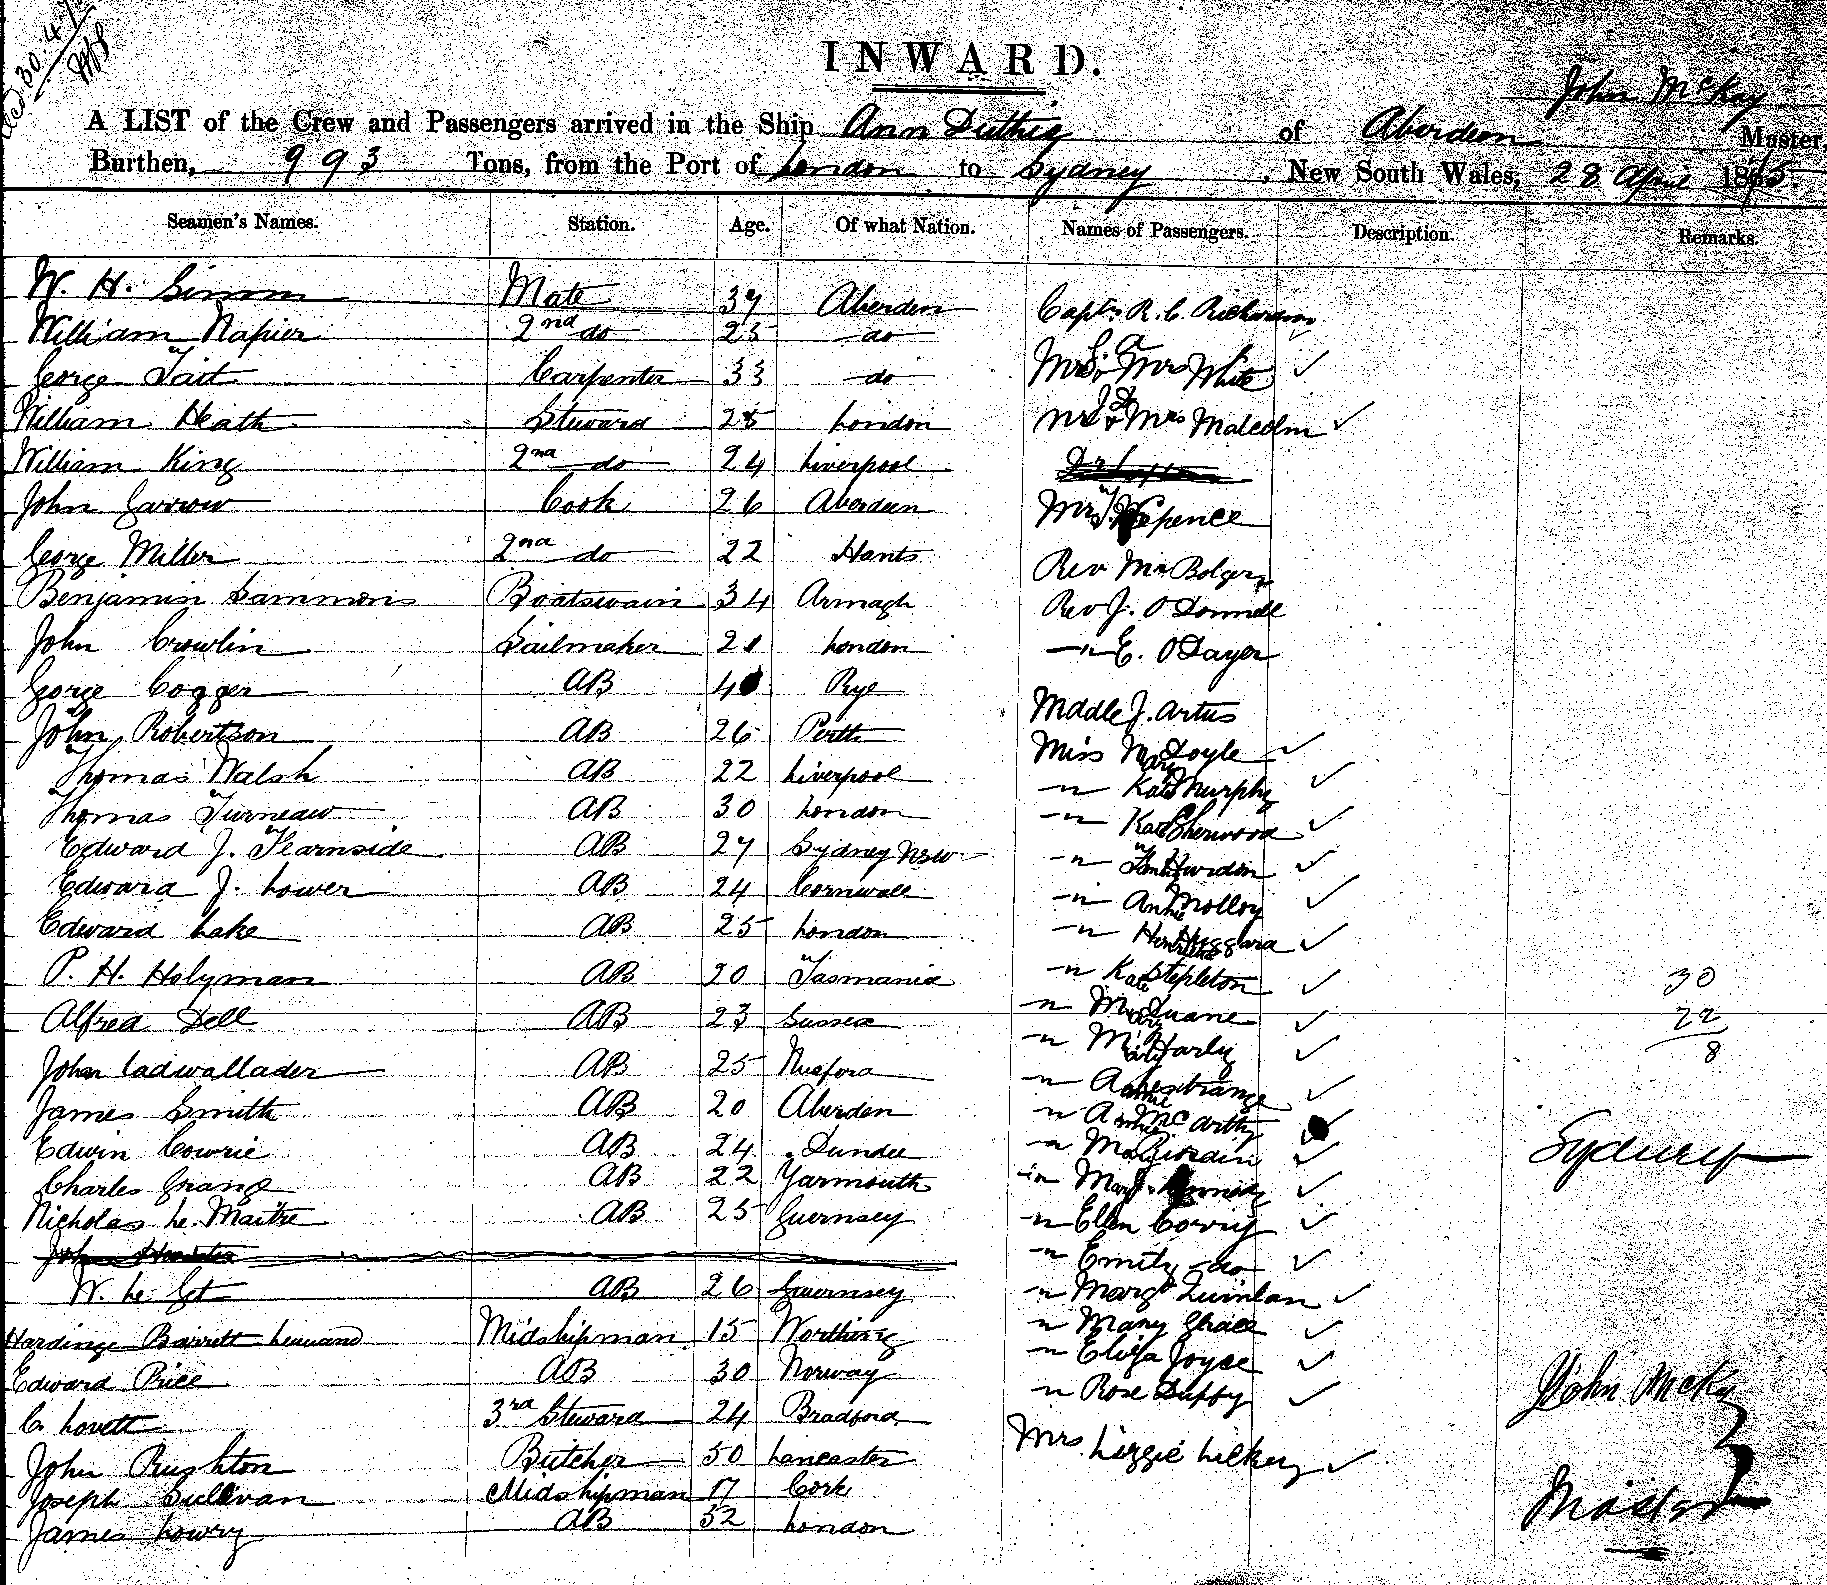 30.4.75
INWARD.
John McKay
A LIST of the Crew and Passengers arrived in the Ship Ann Duthie of Aberdeen Master,
Burthen, 993 Tons, from the Port of London to Sydney, New South Wales, 28 April 1875
Seamen's Names. Station. Age. Of what Nation. Names of Passengers. Description. Remarks.
W. H. Simm Mate 37 Aberdeen Capt. R. C.
William Napier 2nd do 25 do
George Tait Carpenter 33 do Mr & Mrs White ✓
William Heath Steward 25 London Mr & Mrs Malcolm ✓
William King 2nd do 24 Liverpool
John Garrow Cook 26 Aberdeen Mr Spence
George Miller 2nd do 22 Hants Rev Mr Bolger
Benjamin Sammons Boatswain 34 Armagh Rev J. O Donnell
John Crowlin Sailmaker 21 London -"- E. O Dwyer
George Cogger AB Rye Mddle J. Artus
John Robertson AB 26 Perth Miss Mary Doyle ✓
Thomas Walsh AB 22 Liverpool -"- Kate Murphy ✓
Thomas Turneaw AB 30 London -"- Kate Sherwood ✓
Edward J. Fearnside AB 27 Sydney NSW -"- Hurdon ✓
Edward J. Lower AB 24 Cornwall -"- Annie Molloy ✓
Edward Lake AB 25 London -"- Henrietta Heggard ✓
P. H. Holyman AB 20 Tasmania -"- Kate Stepleton ✓ 30
Alfred Dell AB 23 Sussex -"- Mary Duane ✓ 22
John Cadwallader AB 25 -"- Harly ✓ 8
James Smith AB 20 Aberdeen -"- Annie Lestrange ✓
Edwin Cowrie AB 24 Dundee -"- Annie McCarthy ✓
Charles Grang AB 22 Yarmouth -"- ✓ Sydney
Nicholas Le Maitre AB 25 Guernsey -"- Mary Kennedy ✓
John Hunter -"- Ellen Corry ✓
W. Le Get AB 26 Guernsey -"- Emily do ✓
Hardinge Barrett Lennard Midshipman 15 Worthing -"- Margt Quinlan ✓
Edward Price AB 30 Norway -"- Mary Grace ✓
C. Lovett 3rd Steward 24 Bradford -"- Eliza Joyce ✓
John Rushton Butcher 50 Lancaster -"- Rose Duffy ✓
Joseph Sullivan Midshipman 17 Cork Mrs Lizzie ✓
James Lowry AB 32 London
John McKay
Master